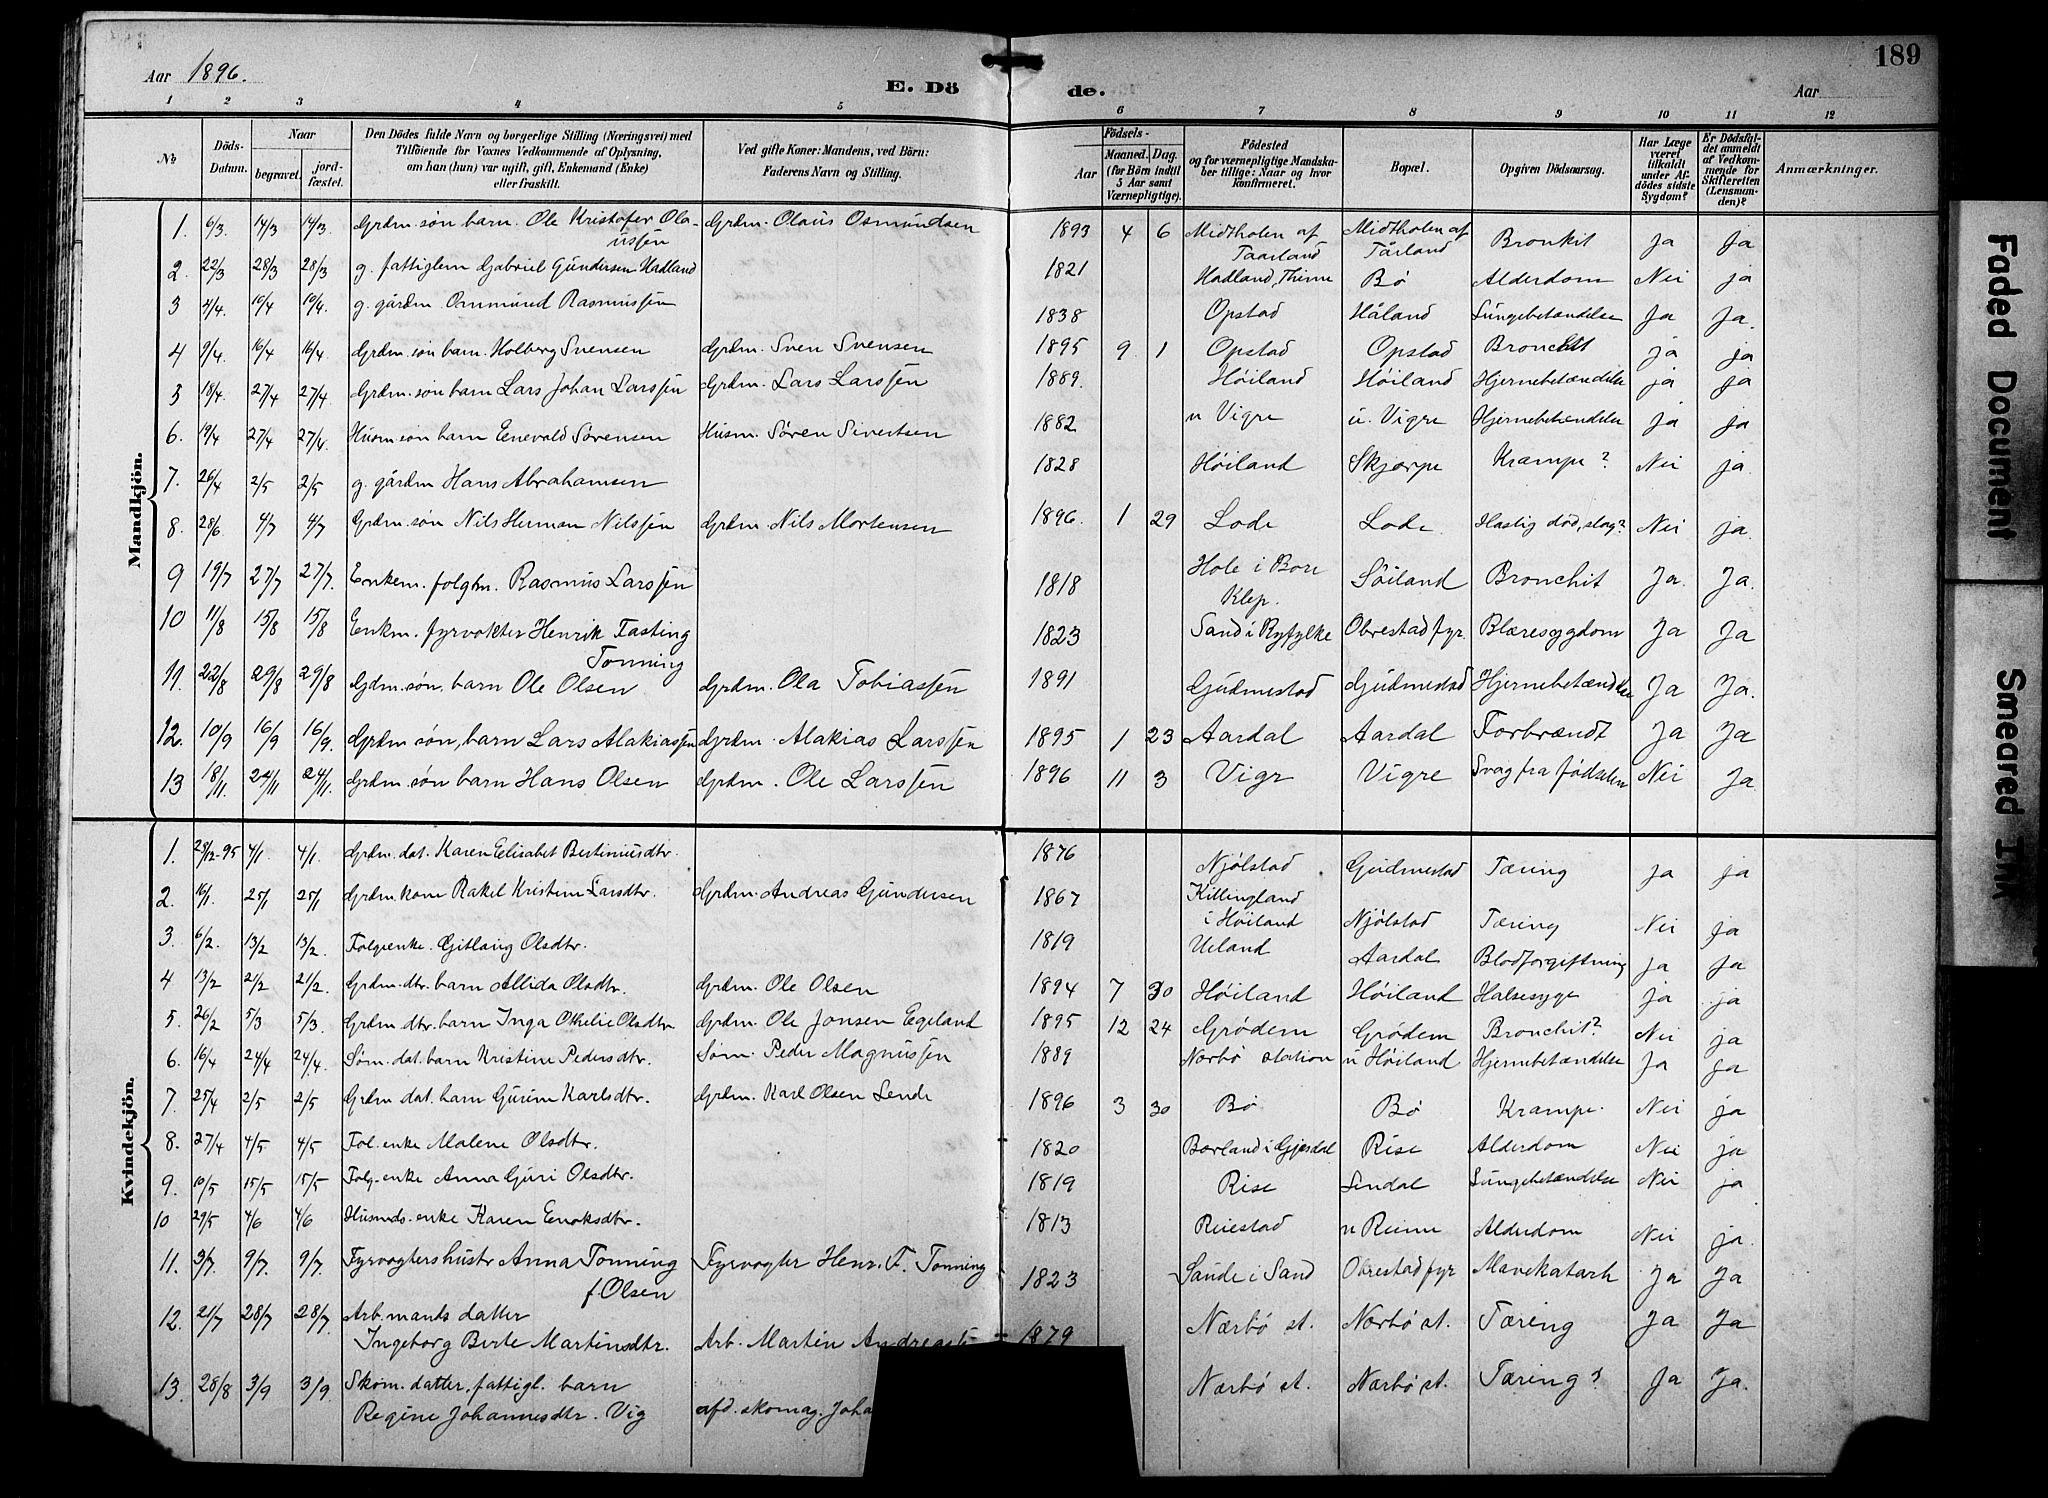 Aar 1896.
E. Dö de.
Aar
189
1 2 3 4 5 6 7 8 9 10 11 12
No
Döds-Datum.
Naar
begravet.
jord-fæstet.
Den Dödes fulde Navn og borgerlige Stilling (Næringsvei) med
Tilföiende for Voxnes Vedkommende af Oplysning,
om han (hun) var ugift, gift, Enkemand (Enke)
eller fraskilt.
Ved gifte Koner: Mandens, ved Börn:
Faderens Navn og Stilling.
Födsels-
Aar
Maaned.
Dag.
(for Börn indtil
5 Aar samt
Værnepligtige).
Födested
og for værnepligtige Mandska-
ber tillige: Naar og hvor
konfirmeret.
Bopæl.
Opgiven Dödsaarsag.
Har Læge
været
tilkaldt
under Af-
dödes sidste
Sygdom?
Er Dödsfal-
det anmeldt
af Vedkom-
mende for
Skifteretten
(Lensman-
den)?
Anmærkninger.
Mandkjön.
1. 6/3 14/3 14/3 Grdm. søn barn. Ole Kristofer Ola-ussen Grdm. Olaus Osmundsen 1893 4 6 Midtholen af Taarland Midtholen af Tårland Bronkit Ja Ja
2. 22/3 28/3 28/3 g. fattiglem Gabriel Gundersen Hadland 1821 Hadland, Thime Bø Alderdom Nei ja
3 4/4. 10/4 10/4. g. gårdm Ommund Rasmussen 1838 Opstad Håland Lungebetændelse Ja Ja.
4 9/4. 16/4 16/4. Grdm. søn barn. Holberg Svensen Grdm. Sven Svensen 1895 9 1 Opstad Opstad Bronchit ja ja
5 18/4. 27/4 27/4. Grdm. søn barn Lars Johan Larssen Grdm. Lars Larssen 1889. Høiland Høiland Hjernebetændelse ja ja
6. 19/4 27/4 27/4. Husm. søn barn Enevald Sørensen Husm. Søren Sivertsen 1882 n Vigre n. Vigre Hjernebetændelse ja ja
7. 26/4 2/5 2/5 g. gårdm Hans Abrahamsen 1828 Høiland Skjærpe Krampe? Nei ja.
8. 28/6 4/7 4/7 Grdm. søn Nils Herman Nilssen Grdm. Nils Mortensen 1896. 1 29 Lode Lode Hastig død, slag? Nei ja.
9 19/7 27/7 27/7. Enkem. folgm. Rasmus Larssen 1818 Hole i Bore Klep. Søiland Bronchit Ja. Ja.
10 11/8 15/8 15/8 Enkm. fyrvokter Henrik Fasting Tonning 1823 Sand i Ryfylke Obrestad fyr. Blæresygdom Ja Ja
11. 22/8 29/8 29/8 Gdm. søn, barn Ole Olsen Grdm. Ola Tobiassen 1891 Gudmestad Gudmestad Hjernebetændelse Ja Ja.
12. 10/9 16/9 16/9. Grdm søn, barn Lars Alakiassen Grdm. Alakias Larssen 1895 1 23 Aardal Aardal Forbrændt Ja Ja
13 18/11. 24/11 24/11. Grdm. søn barn Hans Olsen Grdm. Ole Larssen 1896 11 3 Vigr Vigre Svag fra fødselen Nei Ja
Kvindekjön.
1. 28/12-95 4/1. 4/1. Grdm. dat. Karen Elisabet Bertiniusdtr. 1876 Njølstad Gudmestad Tæring ja ja
2. 16/1. 25/1 25/1 Grdm. kone Rakel Kristine Larsdtr. Grdm. Andreas Gundersen 1867 Killingland i Høiland Njølstad Tæring Nei ja
3. 6/2. 13/2 13/2 Folgeenke. Gitlaug Olsdtr. 1819 Ueland Aardal Blodforgiftning ja ja
4 13/2 21/2 21/2. Grdm. dtr. barn Allida Olsdtr. Grdm. Ole Olsen 1894 7 30 Høiland Høiland Halsesyge ja ja
5. 26/2 5/3 5/3. Grdm. dtr. barn Inga Othelie Olsdtr Grdm. Ole Jonsen Egeland 1895 12 24 Grødem Grødem Bronchit? Nei ja
6. 16/4 24/4 24/4. Søm. dat. barn Kristine Pedersdtr. Søm. Peder Magnussen 1889 Nærbø station n Høiland Hjernebetændelse Ja ja
7. 25/4 2/5 2/5 Grdm dat. barn Gurine Karlsdtr. Grdm. Karl Olsen Lende 1896 3 30 Bø Bø Krampe. Nei ja
8. 27/4 4/5 4/5 Fol. enke Malene Olsdtr. 1820 Børland i Gjesdal Rise Alderdom Nei ja
9. 10/5 15/5 15/5 Folg. enke Anna Guri Olsdtr. 1819 Rise Lendal Lungebetændelse Nei ja
10 29/5 4/6 4/6 Husmds. enke Karen Enoksdtr. 1813 Reiestad n Reime Alderdom Nei ja.
11. 3/7. 9/7. 9/7. Fyrvogtershustr Anna Tonning f. Olsen Fyrvogter Henr. F. Tonning 1823 Saude i Sand Obrestad fyr Mavekatarh ja Ja
12. 21/7 28/7 28/7. Arb. mands datter
Ingeborg Berte Martinsdtr. Arb. Martin 1879 Nærbø st. Nærbø st. Tæring Ja Ja
13. 28/8 3/9 3/9. Skom. datter, fattigl. barn
Regine Johannesdtr. Vig afd. skomag. Joha Nærbø st. Nærbø st. Tæring? Ja Ja.
Faded Document
Smeared Ink